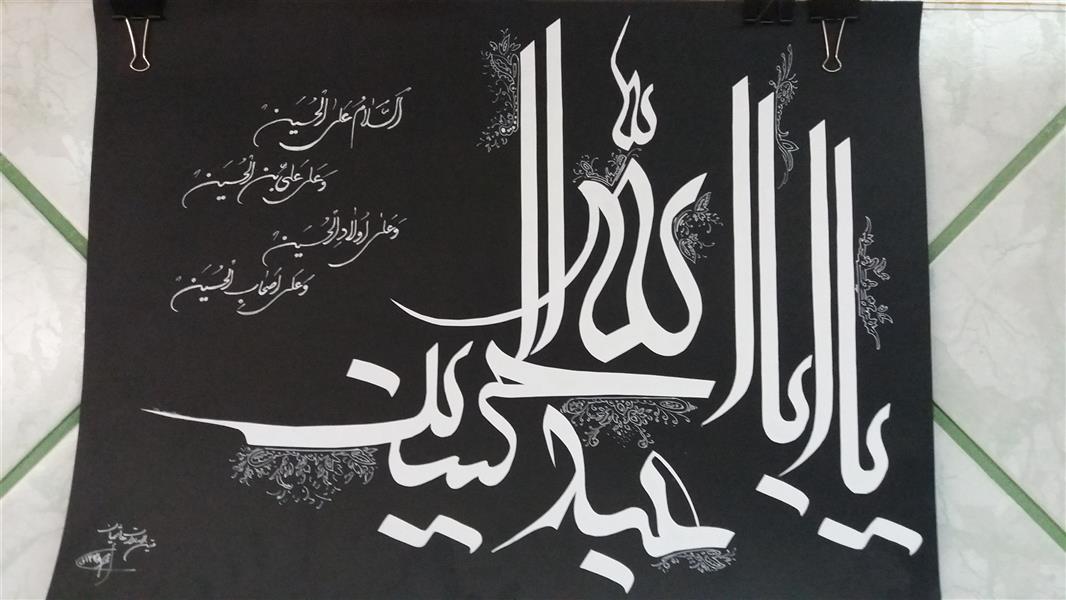 یا ابا عبدالله الحسین
اَلسَّلامُ عَلَی الْحُسَیْن
وَ عَلی عَلیِّ بْنِ الْحُسَیْن
وَ عَلی اَوْلادِ الْحُسَیْن
وَ عَلی اَصْحابِ الْحُسَیْن